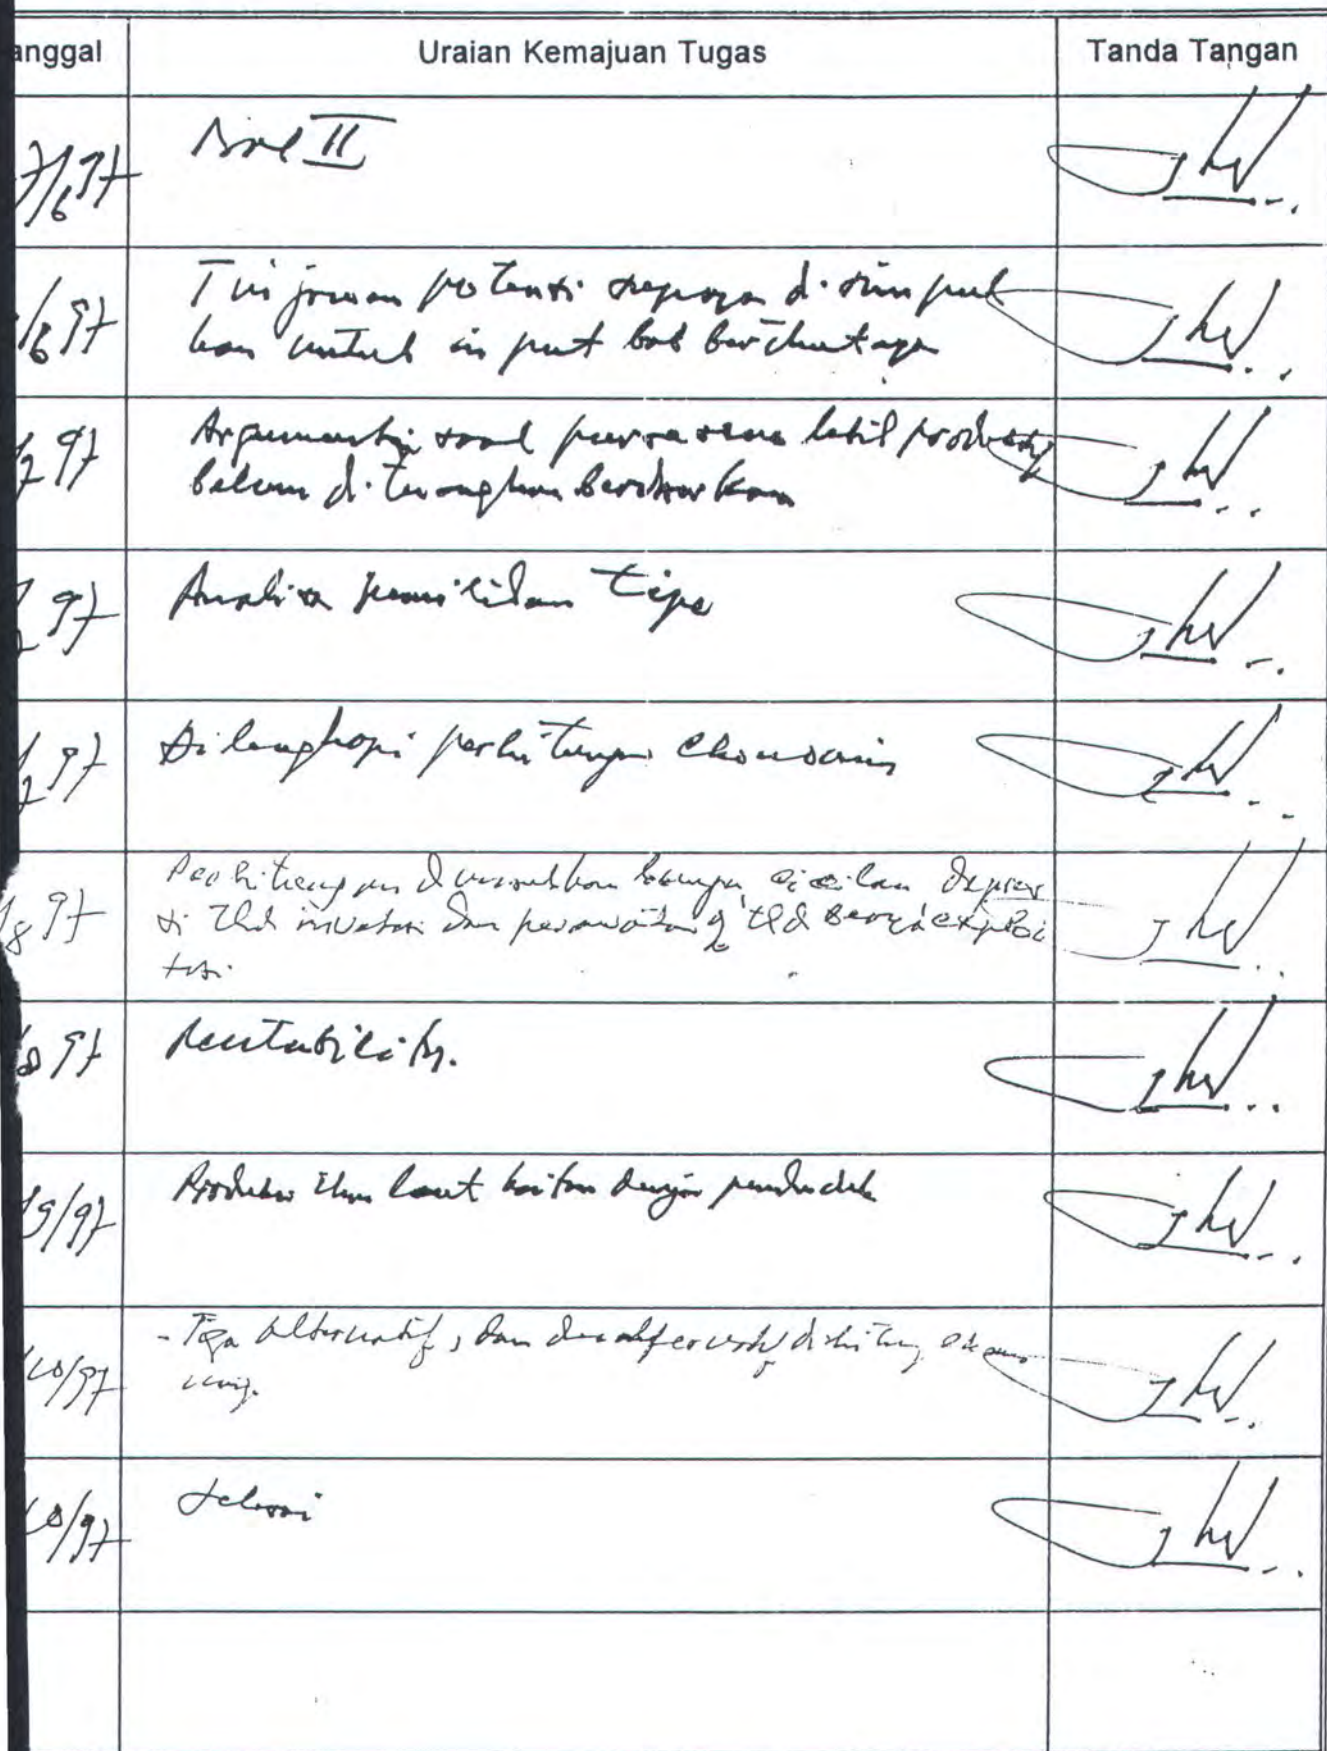 anggal Uraian Kemajuan Tugas Tanda Tangan
Bab II
7/6 97
Tinjauan potensi supaya disimpul
kan untuk input bab berikutnya
/6 97
Argumentasi soal hasil
belum diterangkan berdasarkan
97
Analisa pemilihan tipe
97
Dilengkapi perhitungan ekonomis
97
Perhitungan dimasukkan bunga, cicilan depresi
si thd investasi dan perawatan thd biaya exploi
tasi.
/8 97
Rentability.
8 97
Produksi ikan laut kaitan dengan penduduk
9/97
- Tiga alternatif, dan dihitung
10/97
Selesai
10/97